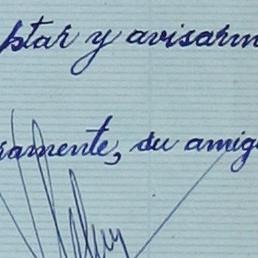 ptar y avisarm
ramente, su amig